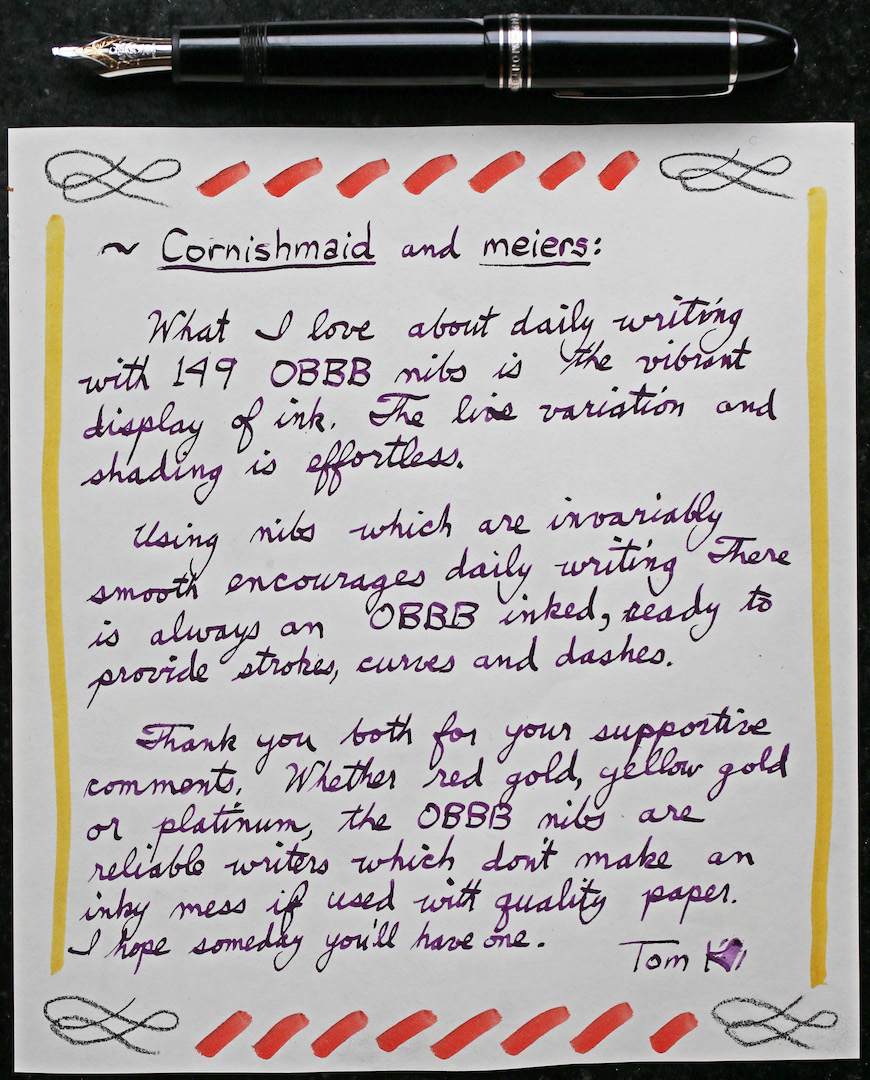 ~ Cornishmaid and meiers:
What I love about daily writing
with 149 OBBB nibs is the vibrant
display of ink. The line variation and
shading is effortless.
Using nibs which are invariably
smooth encourages daily writing There
is always an OBBB inked, ready to
provide strokes, curves and dashes.
Thank you both for your supportive
comments. Whether red gold, yellow gold
or platinum, the OBBB nibs are
reliable writers which don't make an
inky mess if used with quality paper.
I hope someday you'll have one.
Tom K